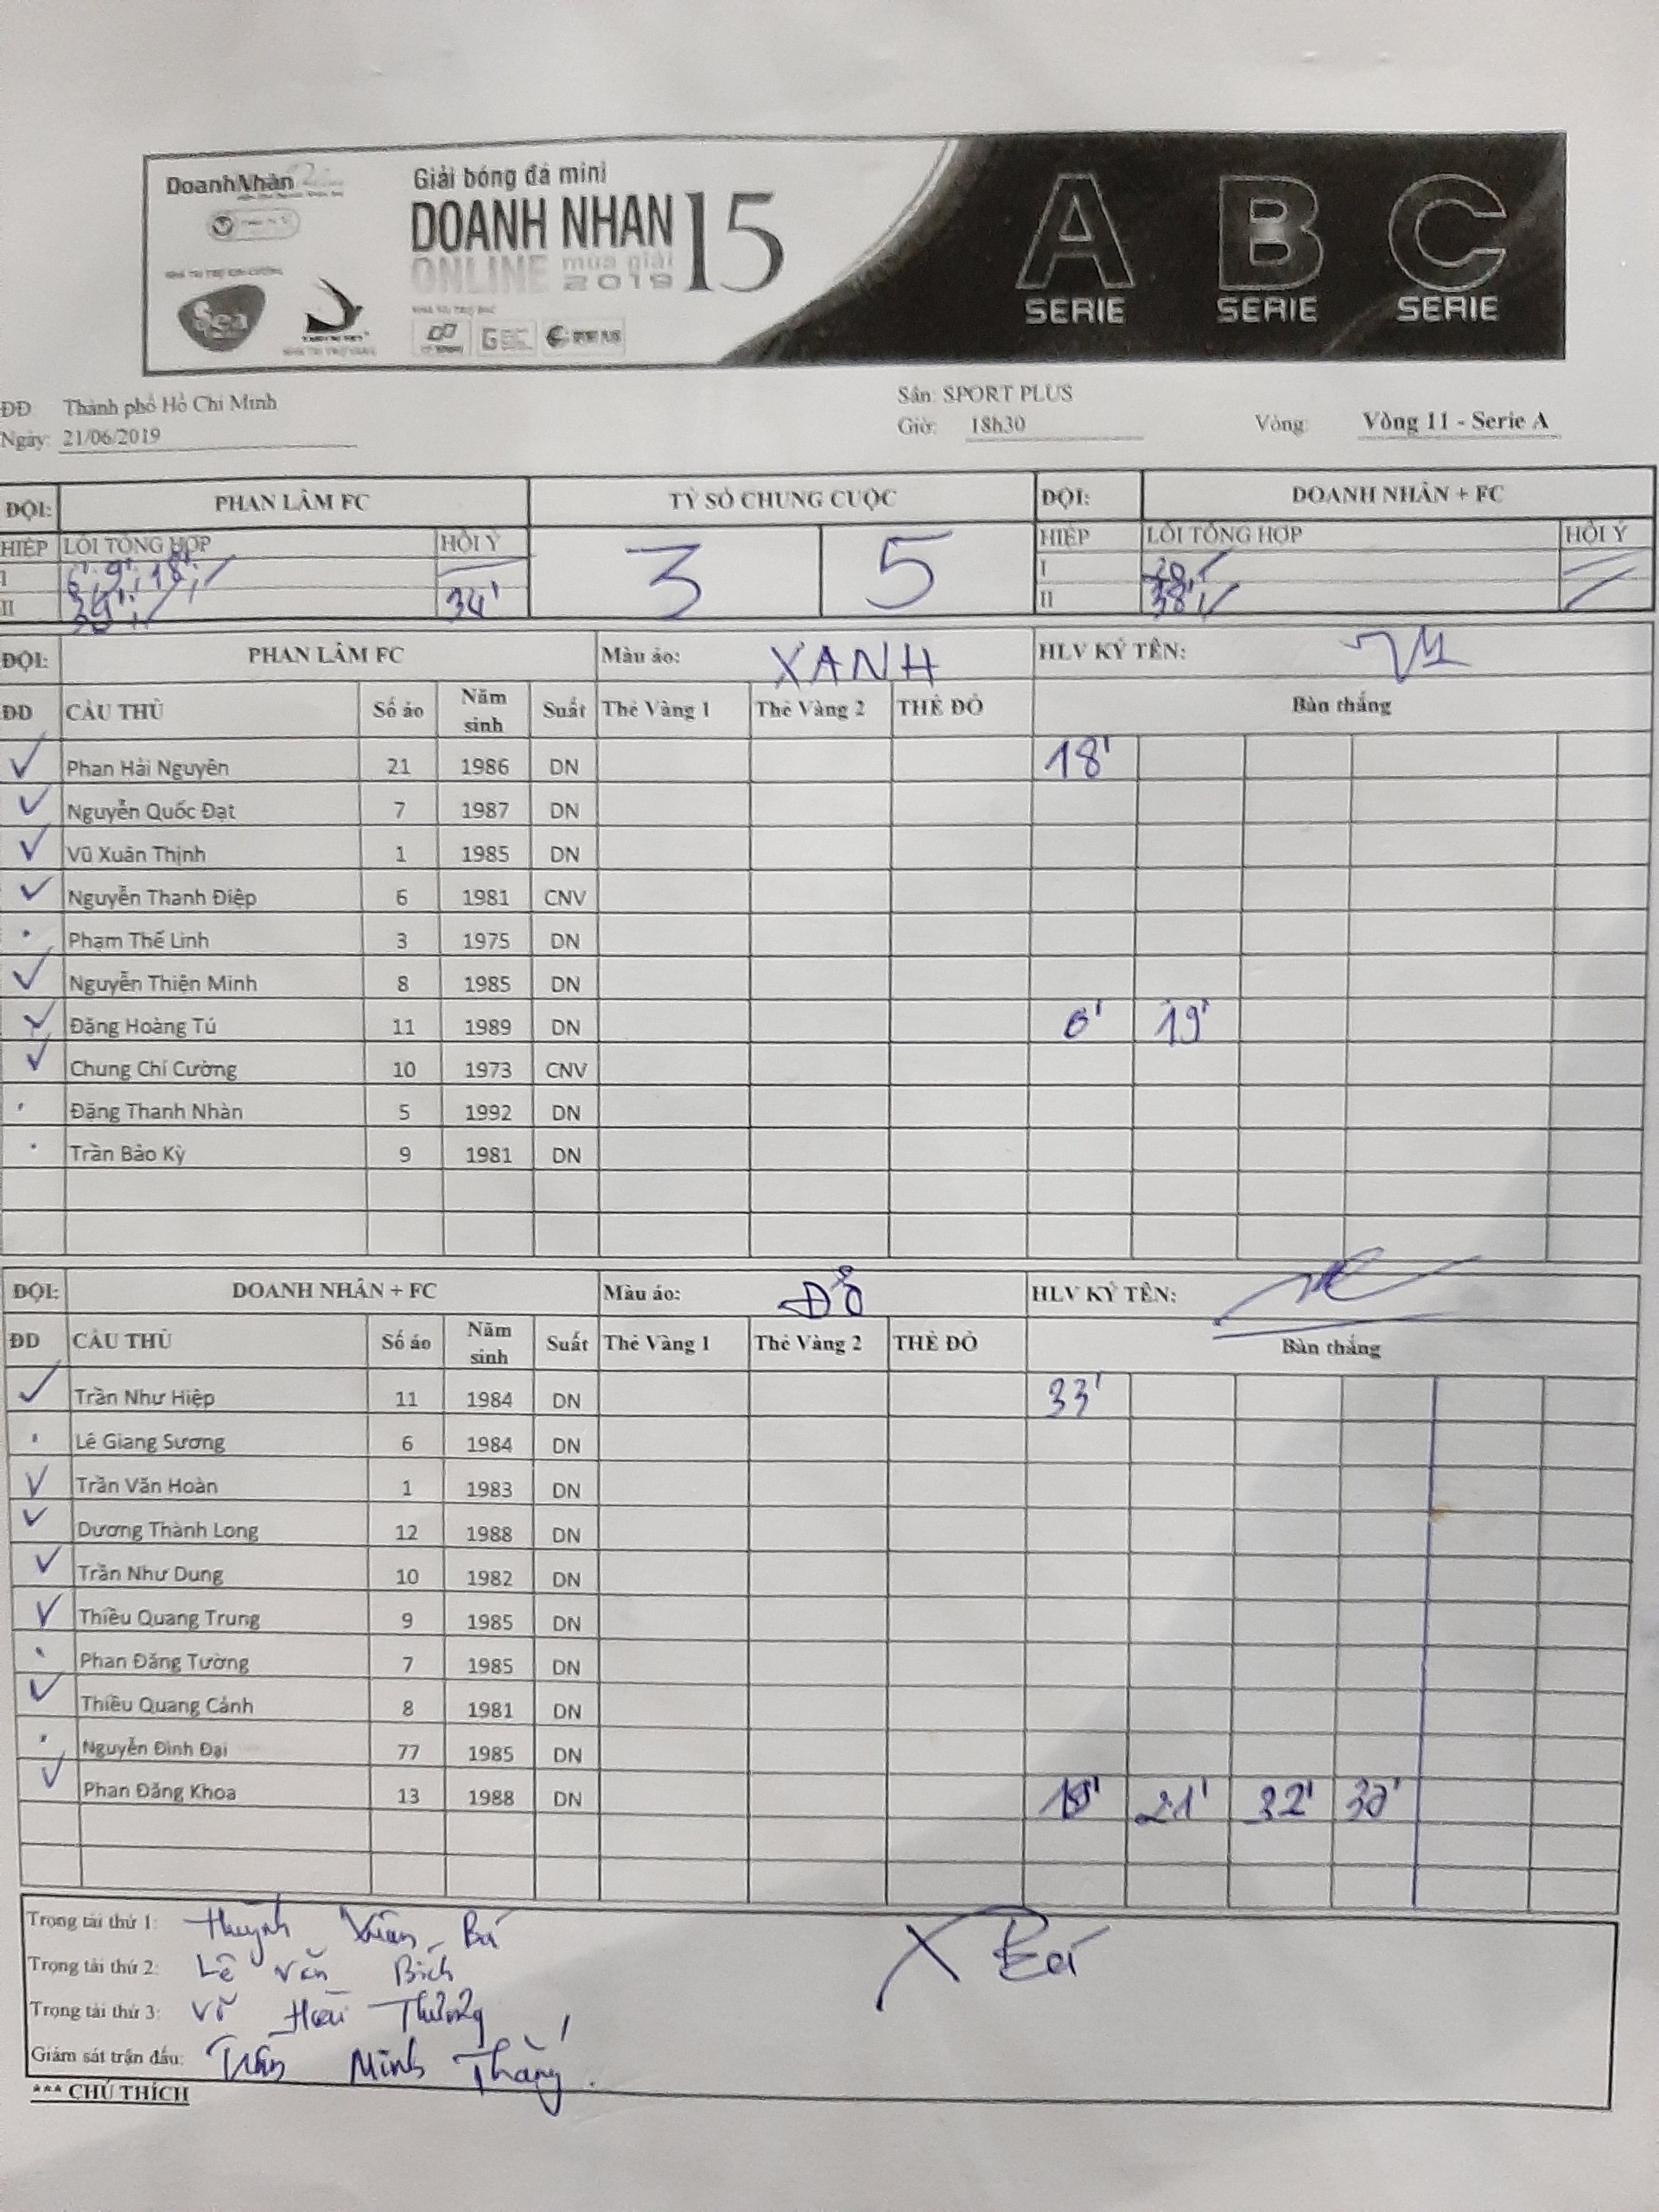 DoanhNhân
Giải bóng đá mini
DOANH NHAN 15
ONLINE mùa giải
2019
Sea
A B C
SERIE SERIE SERIE
ĐĐ Thành phố Hồ Chí Minh Sân: SPORT PLUS
Ngày: 21/06/2019 Giờ: 18h30 Vòng: Vòng 11 - Serie A
ĐỘI: PHAN LÂM FC TỶ SỐ CHUNG CUỘC ĐỘI: DOANH NHÂN + FC
HIỆP LỖI TỔNG HỢP HỘI Ý 3 5 HIỆP LỖI TỔNG HỢP HỘI Ý
I 6' 9' 18' I
II 34' II 38'
ĐỘI: PHAN LÂM FC Màu áo: XANH HLV KÝ TÊN:
ĐD CẦU THỦ Số áo Năm sinh Suất Thẻ Vàng 1 Thẻ Vàng 2 THẺ ĐỎ Bàn thắng
Phan Hải Nguyên 21 1986 DN 18'
Nguyễn Quốc Đạt 7 1987 DN
Vũ Xuân Thịnh 1 1985 DN
Nguyễn Thanh Điệp 6 1981 CNV
Phạm Thế Linh 3 1975 DN
Nguyễn Thiện Minh 8 1985 DN
Đặng Hoàng Tú 11 1989 DN 19'
Chung Chí Cường 10 1973 CNV
Đặng Thanh Nhàn 5 1992 DN
Trần Bảo Kỳ 9 1981 DN
ĐỘI: DOANH NHÂN + FC Màu áo: ĐỎ HLV KÝ TÊN:
ĐD CẦU THỦ Số áo Năm sinh Suất Thẻ Vàng 1 Thẻ Vàng 2 THẺ ĐỎ Bàn thắng
Trần Như Hiệp 11 1984 DN 33'
Lê Giang Sương 6 1984 DN
Trần Văn Hoàn 1 1983 DN
Dương Thành Long 12 1988 DN
Trần Như Dung 10 1982 DN
Thiều Quang Trung 9 1985 DN
Phan Đăng Tường 7 1985 DN
Thiều Quang Cảnh 8 1981 DN
Nguyễn Đình Đại 77 1985 DN
Phan Đăng Khoa 13 1988 DN 21' 32'
Trọng tài thứ 1: Huỳnh Xuân Bá
Trọng tài thứ 2: Lê Văn Bích
Trọng tài thứ 3: Võ Hoài Thương
Giám sát trận đấu: Trần Minh Thắng.
X Bá
*** CHÚ THÍCH